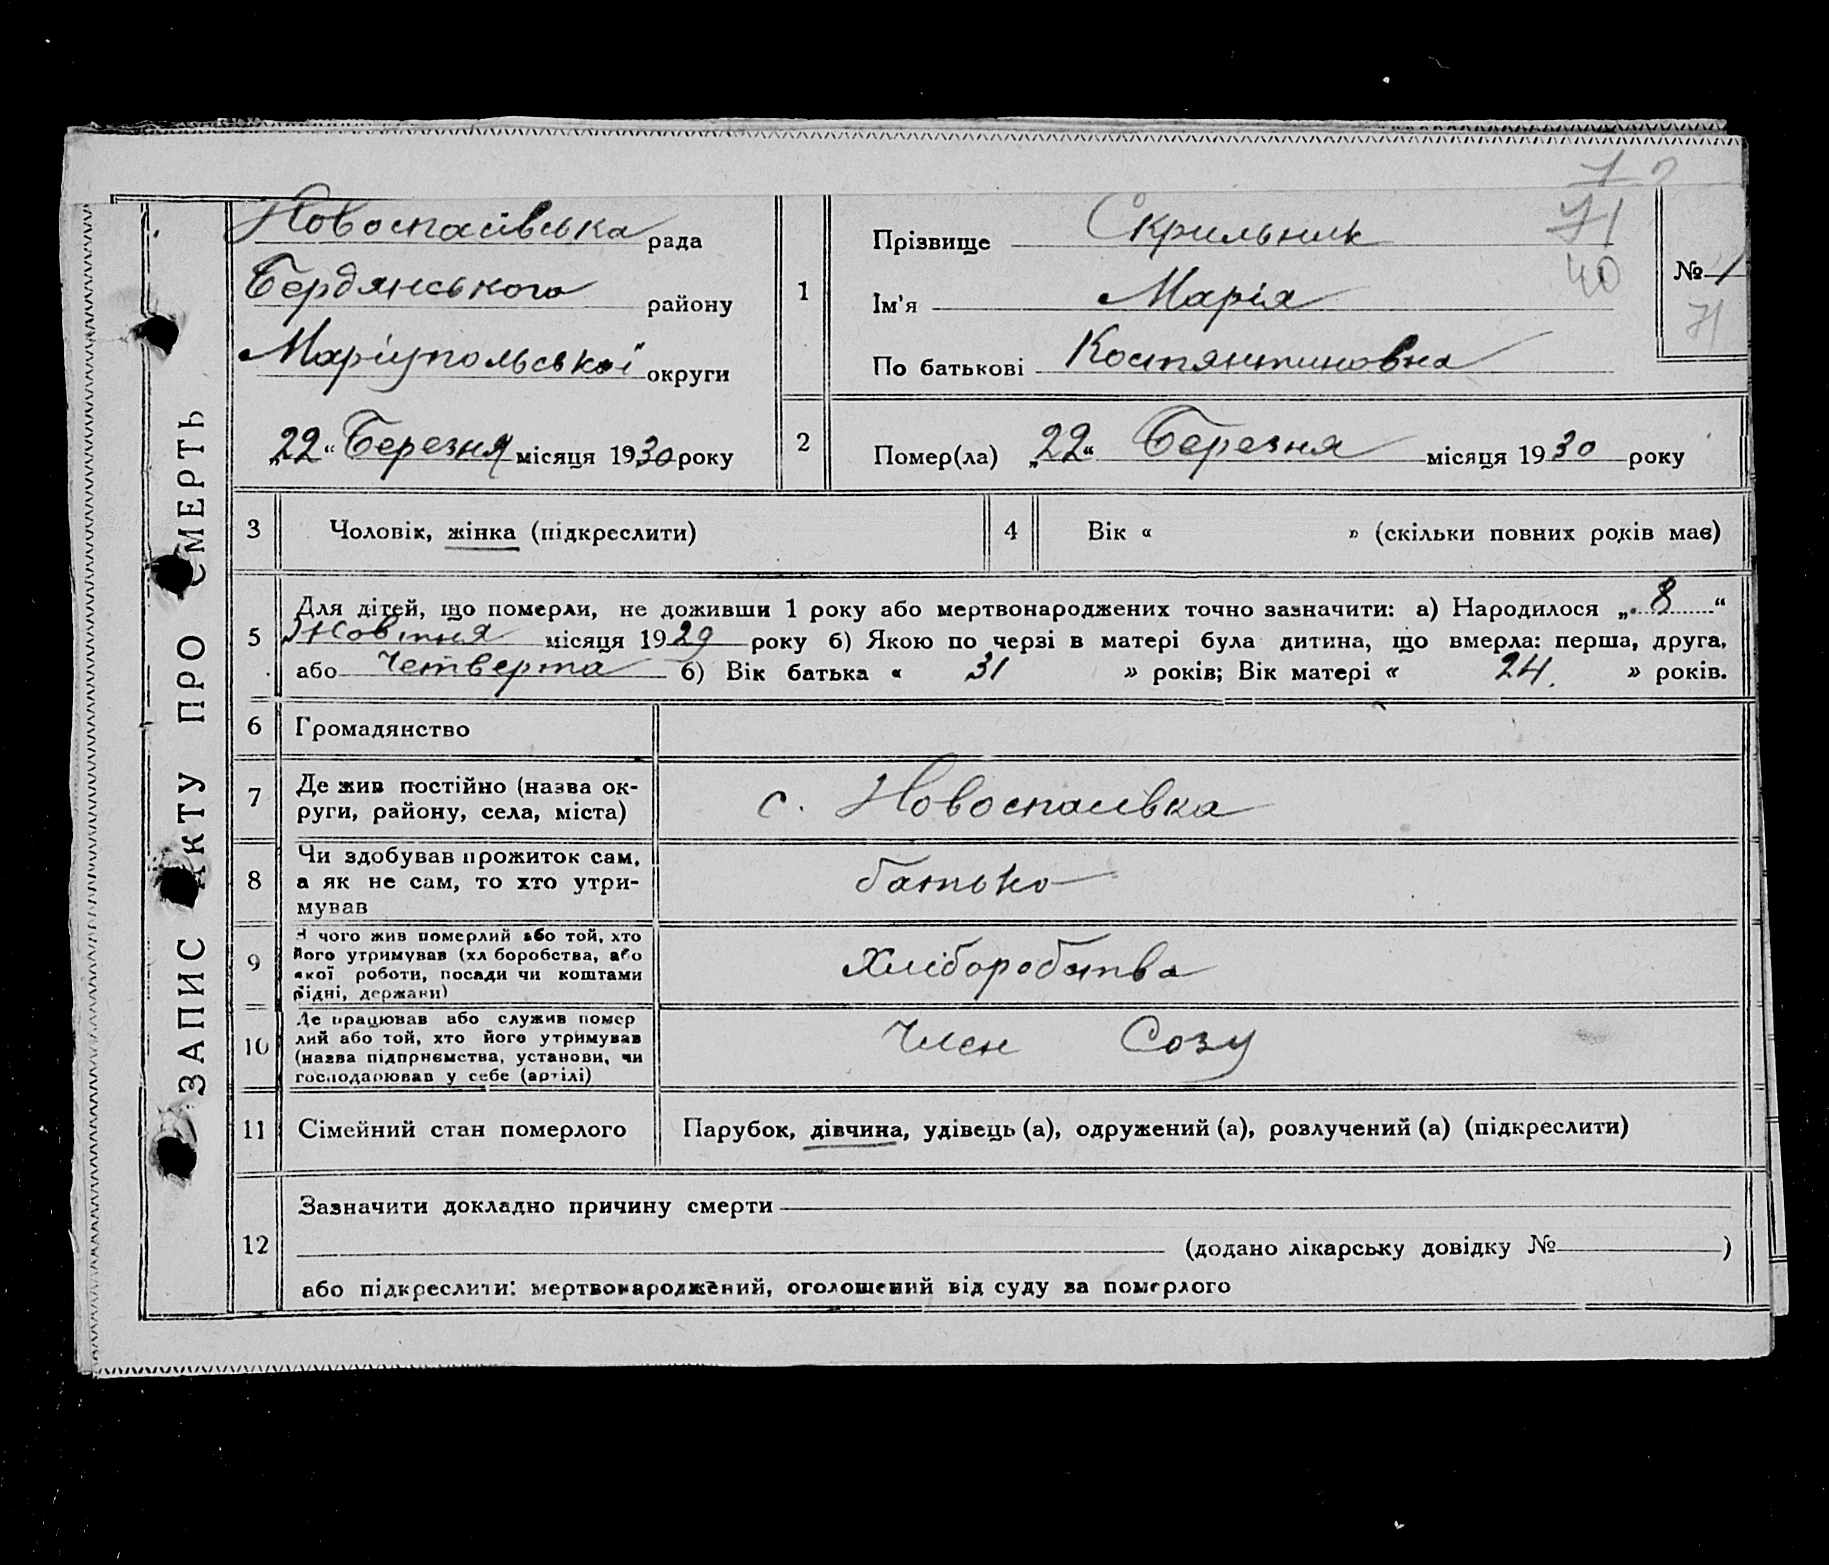 ЗАПИС АКТУ ПРО СМЕРТЬ
Новоспасівська рада
Бердянського району
Маріупольської округи
„22“ Березня місяця 1930 року
1
Прізвище Скрильник
Ім'я Марія
По батькові Костянтиновна
71
40
№ 1
71
2
Помер(ла) „22“ Березня місяця 1930 року
3 Чоловік, жінка (підкреслити)
4 Вік « » (скільки повних років має)
5
Для дітей, що померли, не доживши 1 року або мертвонароджених точно зазначити: а) Народилося „8“
Жовтня місяця 1929 року б) Якою по черзі в матері була дитина, що вмерла: перша, друга,
або Четверта б) Вік батька « 31 » років; Вік матері « 24 » років.
6 Громадянство
7
Де жив постійно (назва ок-
руги, району, села, міста)
с. Новоспасівка
8
Чи здобував прожиток сам,
а як не сам, то хто утри-
мував
батько
9
З чого жив померлий або той, хто
його утримував (хліборобства, або
якої роботи, посади чи коштами
рідні, держави)
Хліборобства
10
Де працював або служив помер
лий або той, хто його утримував
(назва підприємства, установи, чи
господарював у себе (артілі)
Член Созу
11 Сімейний стан померлого
Парубок, дівчина, удівець (а), одружений (а), розлучений (а) (підкреслити)
12
Зазначити докладно причину смерти
(додано лікарську довідку № )
або підкреслити: мертвонароджений, оголошений від суду за померлого